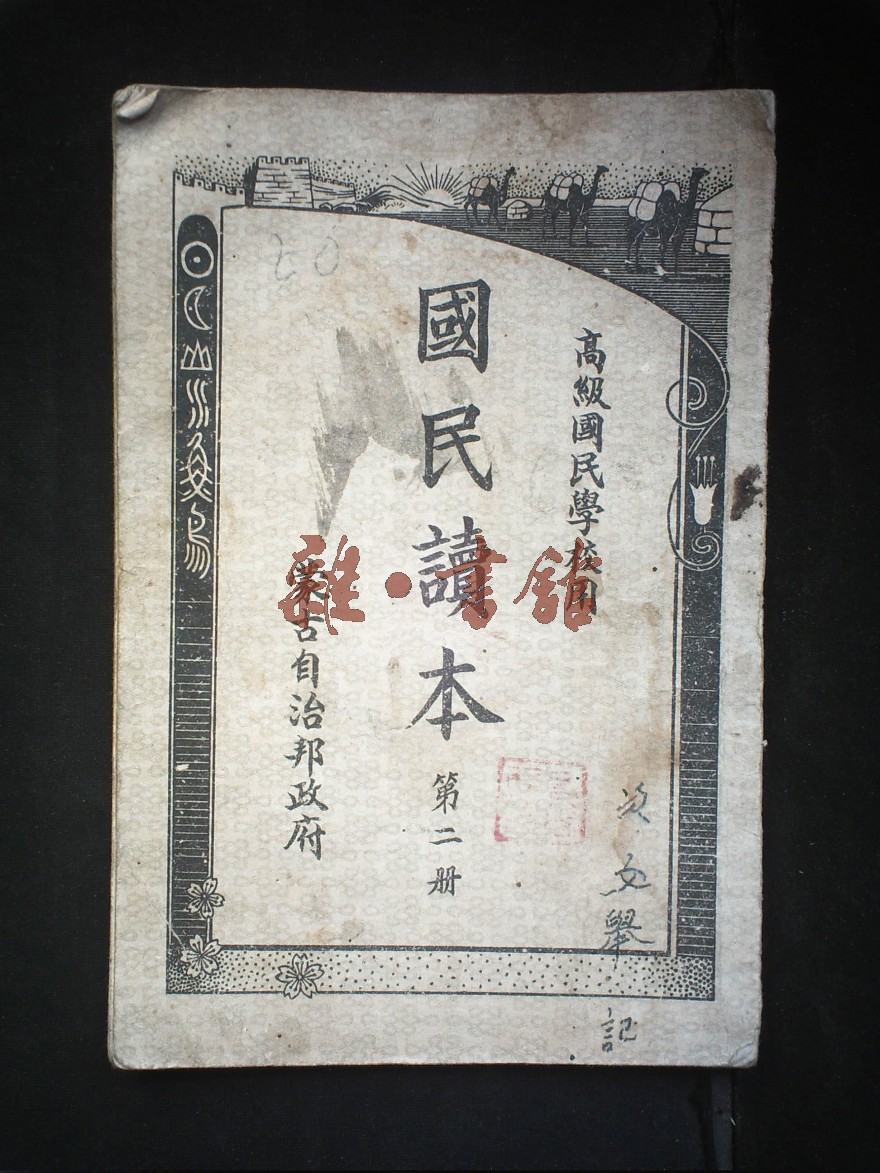 高級國民學校用
國民讀本
第二册
蒙古自治邦政府
雜·書館
文舉
記
20